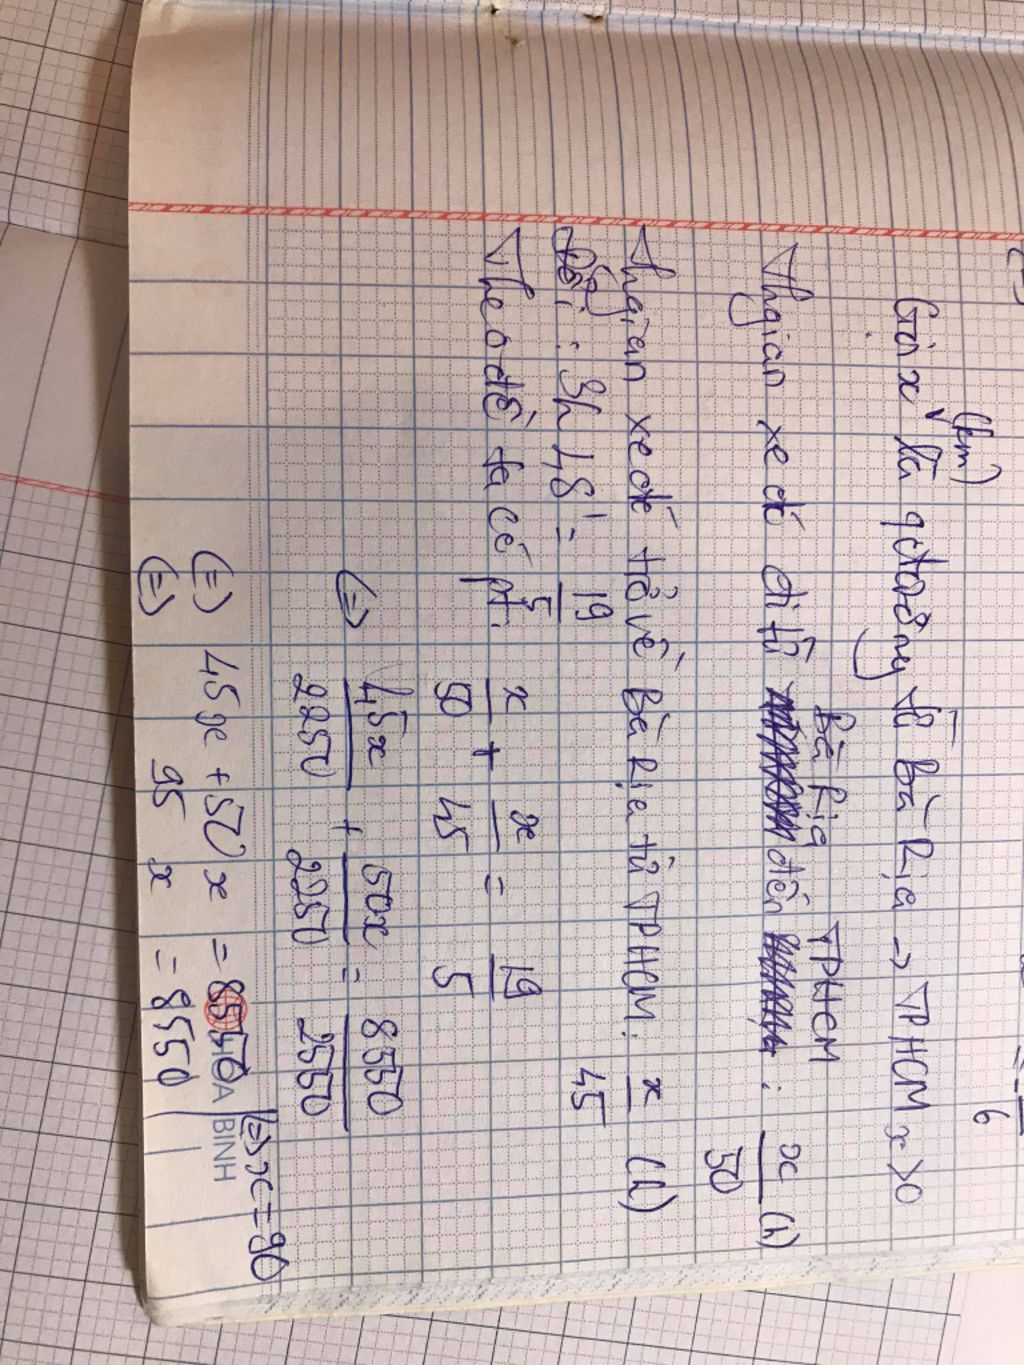 (km)
Gọi x là qđường từ Bà Rịa → TPHCM x > 0
Bà Rịa TPHCM
Thgian xe đó đi từ đến : x/50 (h)
Thgian xe đó trở về Bà Rịa từ TPHCM: x/45 (h)
Đổi : 3h48' = 19/5
Theo đề ta có pt:
x/50 + x/45 = 19/5
(=) 45x/2250 + 50x/2250 = 8550/2550
(=) 45x + 50x = 8550
(=) 95x = 8550
(=) x = 90
HÒA BÌNH
6